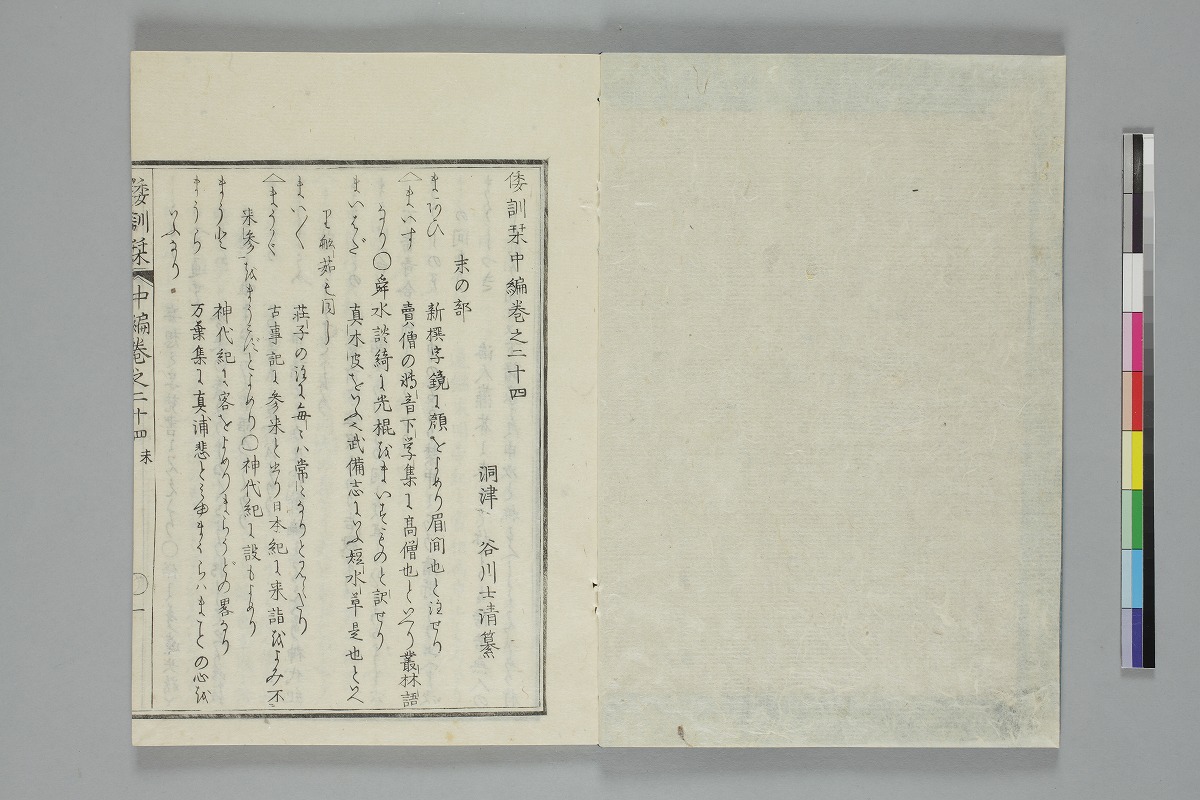 倭訓栞中編巻之二十四
洞津 谷川士清纂
末の部
まあひ 新撰字鏡に顔をよめり眉間也と注せり
まいす 賣僧の轉音下学集に髙僧也といへり叢林語
なり〇舜水談綺に光棍をまいすものと訳せり
まいはだ 真木皮をいふ武備志にいふ短水草是也とい
り舩茹も同し
まい〳〵 荘子の注に毎〻ハ常になりとみえたり
まうく 古事記に参来と書り日本紀に来詣をよみ不
来参をまうこずとよめり〇神代紀に設もよめり
まうと 神代紀に客をよめりまらうどの畧なり
まうら 万葉集に真浦悲とみゆまくらハまことの心を
いふなり
倭訓栞 中編巻之二十四 末 〇一